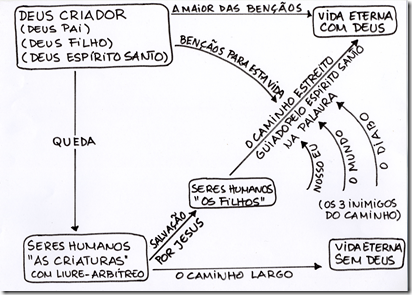 DEUS CRIADOR
(DEUS PAI)
(DEUS FILHO)
(DEUS ESPÍRITO SANTO)
A MAIOR DAS BENÇÃOS
VIDA ETERNA
COM DEUS
BENÇÃOS PARA ESTA VIDA
O CAMINHO ESTREITO
GUIADO PELO ESPÍRITO SANTO
NA PALAVRA
QUEDA
NOSSO EU
O MUNDO
O DIABO
(OS 3 INIMIGOS
DO CAMINHO)
SERES HUMANOS
"OS FILHOS"
SALVAÇÃO
POR JESUS
SERES HUMANOS
"AS CRIATURAS"
COM LIVRE-ARBÍTREO
O CAMINHO LARGO
VIDA ETERNA
SEM DEUS